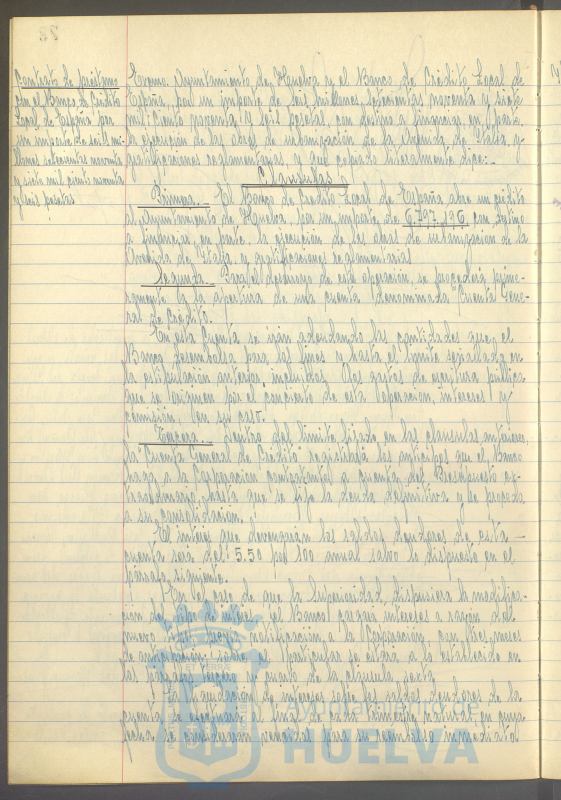 Contrato de préstamo
con el Banco de Crédito
Local de España por
un importe de seis mi-
llones setecientas noventa
y siete mil ciento noventa
y seis pesetas
Excmo. Ayuntamiento de Huelva y el Banco de Crédito Local de
España, por un importe de seis millones, setecientas noventa y siete
mil ciento noventa y seis pesetas, con destino a financiar en parte
la ejecución de las obras de urbanización de la Avenida de Italia y
gratificaciones reglamentarias, y que copiado literalmente dice:-
Clausulas
Primera.- El Banco de Crédito Local de España abre un crédito
al Ayuntamiento de Huelva, por un importe de 6.797.196, con destino
a financiar, en parte, la ejecución de las obras de urbanización de la
Avenida de Italia, y gratificaciones reglamentarias.
Segunda.- Para el desarrollo de esta operación, se procederá prime-
ramente a la apertura de una cuenta denominada "Cuenta Gene-
ral de Crédito".
En esta Cuenta se irán adeudando las cantidades que el
Banco desembolse para los fines y hasta el límite señalado en
la estipulación anterior, incluidos los gastos de escritura pública
que se originen por el concierto de esta operación, intereses y
comisión, en su caso.
Tercera.- Dentro del límite fijado en las clausulas anteriores,
la "Cuenta General de Crédito" registrará los anticipos que el Banco
haga a la Corporación contratante a cuenta del Presupuesto ex-
traordinario, hasta que se fije la deuda definitiva y se proceda
a su consolidación.
El interés que devengarán los saldos deudores de esta -
cuenta será del 5.50 por 100 anual salvo lo dispuesto en el
párrafo siguiente.
En el caso de que la Superioridad dispusiera la modifica-
ción del tipo de interés, el Banco cargará intereses a razón del
nuevo tipo, previa notificación a la Corporación, con tres meses
de antelación; sobre particular se estará a lo establecido en
los párrafos tercero y cuarto de la cláusula sexta.
La liquidación de intereses sobre los saldos deudores de la
cuenta se efectuará al final de cada trimestre natural, en cuya
fecha se considerarán vencidos para su reembolso inmediato
Ayuntamiento de
HUELVA